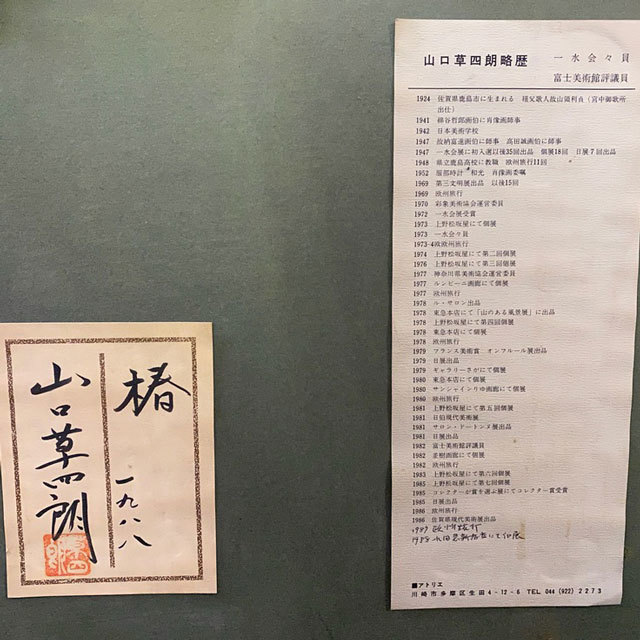 椿
一九八八
山口草四朗
山口草四朗略歴
一水会々員
富士美術館評議員
1924 佐賀県鹿島市に生まれる 祖父歌人故山領利貞(宮中御歌所
出仕)
1941 柳谷哲郎画伯に肖像画師事
1942 日本美術学校
1947 故納富進画伯に師事 高田誠画伯に師事
1947 一水会展に初入選以後35回出品 個展18回 日展7回出品
1948 県立鹿島高校に教職 欧州旅行11回
1952 服部時計 和光 肖像画委嘱
1969 第三文明展出品 以後15回
1969 欧州旅行
1970 彩象美術協会運営委員
1972 一水会展受賞
1973 上野松坂屋にて個展
1973 一水会々員
1973-4欧欧州旅行
1974 上野松坂屋にて第二回個展
1976 上野松坂屋にて第三回個展
1977 神奈川県美術協会運営委員
1977 ルンビーニ画廊にて個展
1977 欧州旅行
1978 ル・サロン出品
1978 東急本店にて「山のある風景展」に出品
1978 上野松坂屋にて第四回個展
1978 東急本店にて個展
1978 欧州旅行
1979 フランス美術賞 オンフルール展出品
1979 日展出品
1979 ギャラリーさがにて個展
1980 東急本店にて個展
1980 サンシャインりゆ画廊にて個展
1980 欧州旅行
1981 上野松坂屋にて第五回個展
1981 日伯現代美術展
1981 サロン・ドートンヌ展出品
1981 日展出品
1982 富士美術館評議員
1982 画廊にて個展
1982 欧州旅行
1983 上野松坂屋にて第六回個展
1985 上野松坂屋にて第七回個展
1985 コレクターが賞を選ぶ展にてコレクター賞受賞
1985 日展出品
1986 欧州旅行
1986 佐賀県現代美術展出品
1987 欧州旅行
にて個展
■アトリエ
川崎市多摩区生田4-12-6 TEL 044 (922) 2273